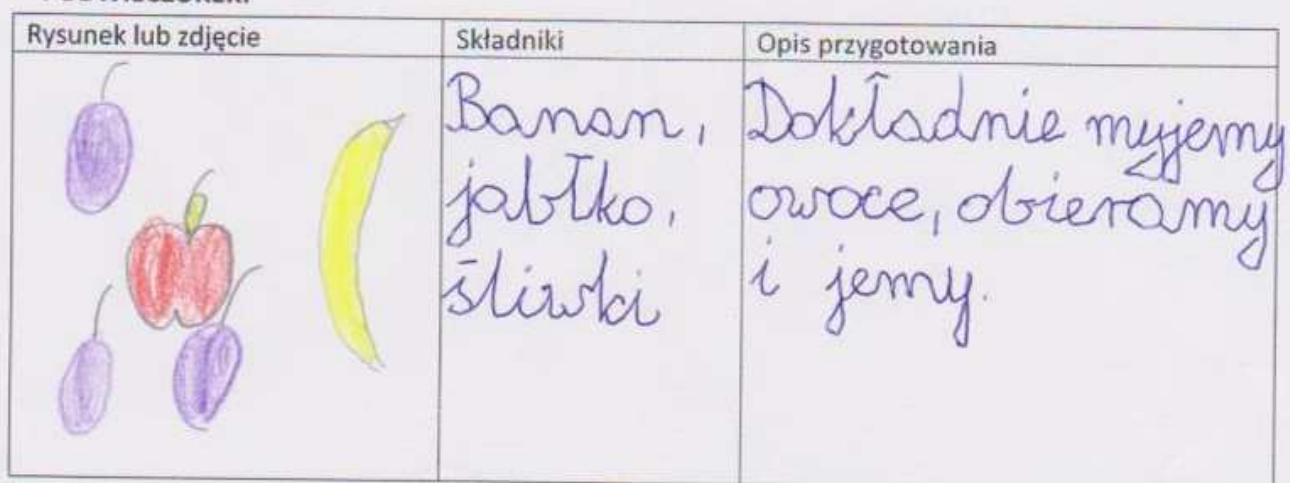 Rysunek lub zdjęcie
Składniki
Opis przygotowania
Banan,
jabłko,
śliwki
Dokładnie myjemy
owoce, obieramy
i jemy.